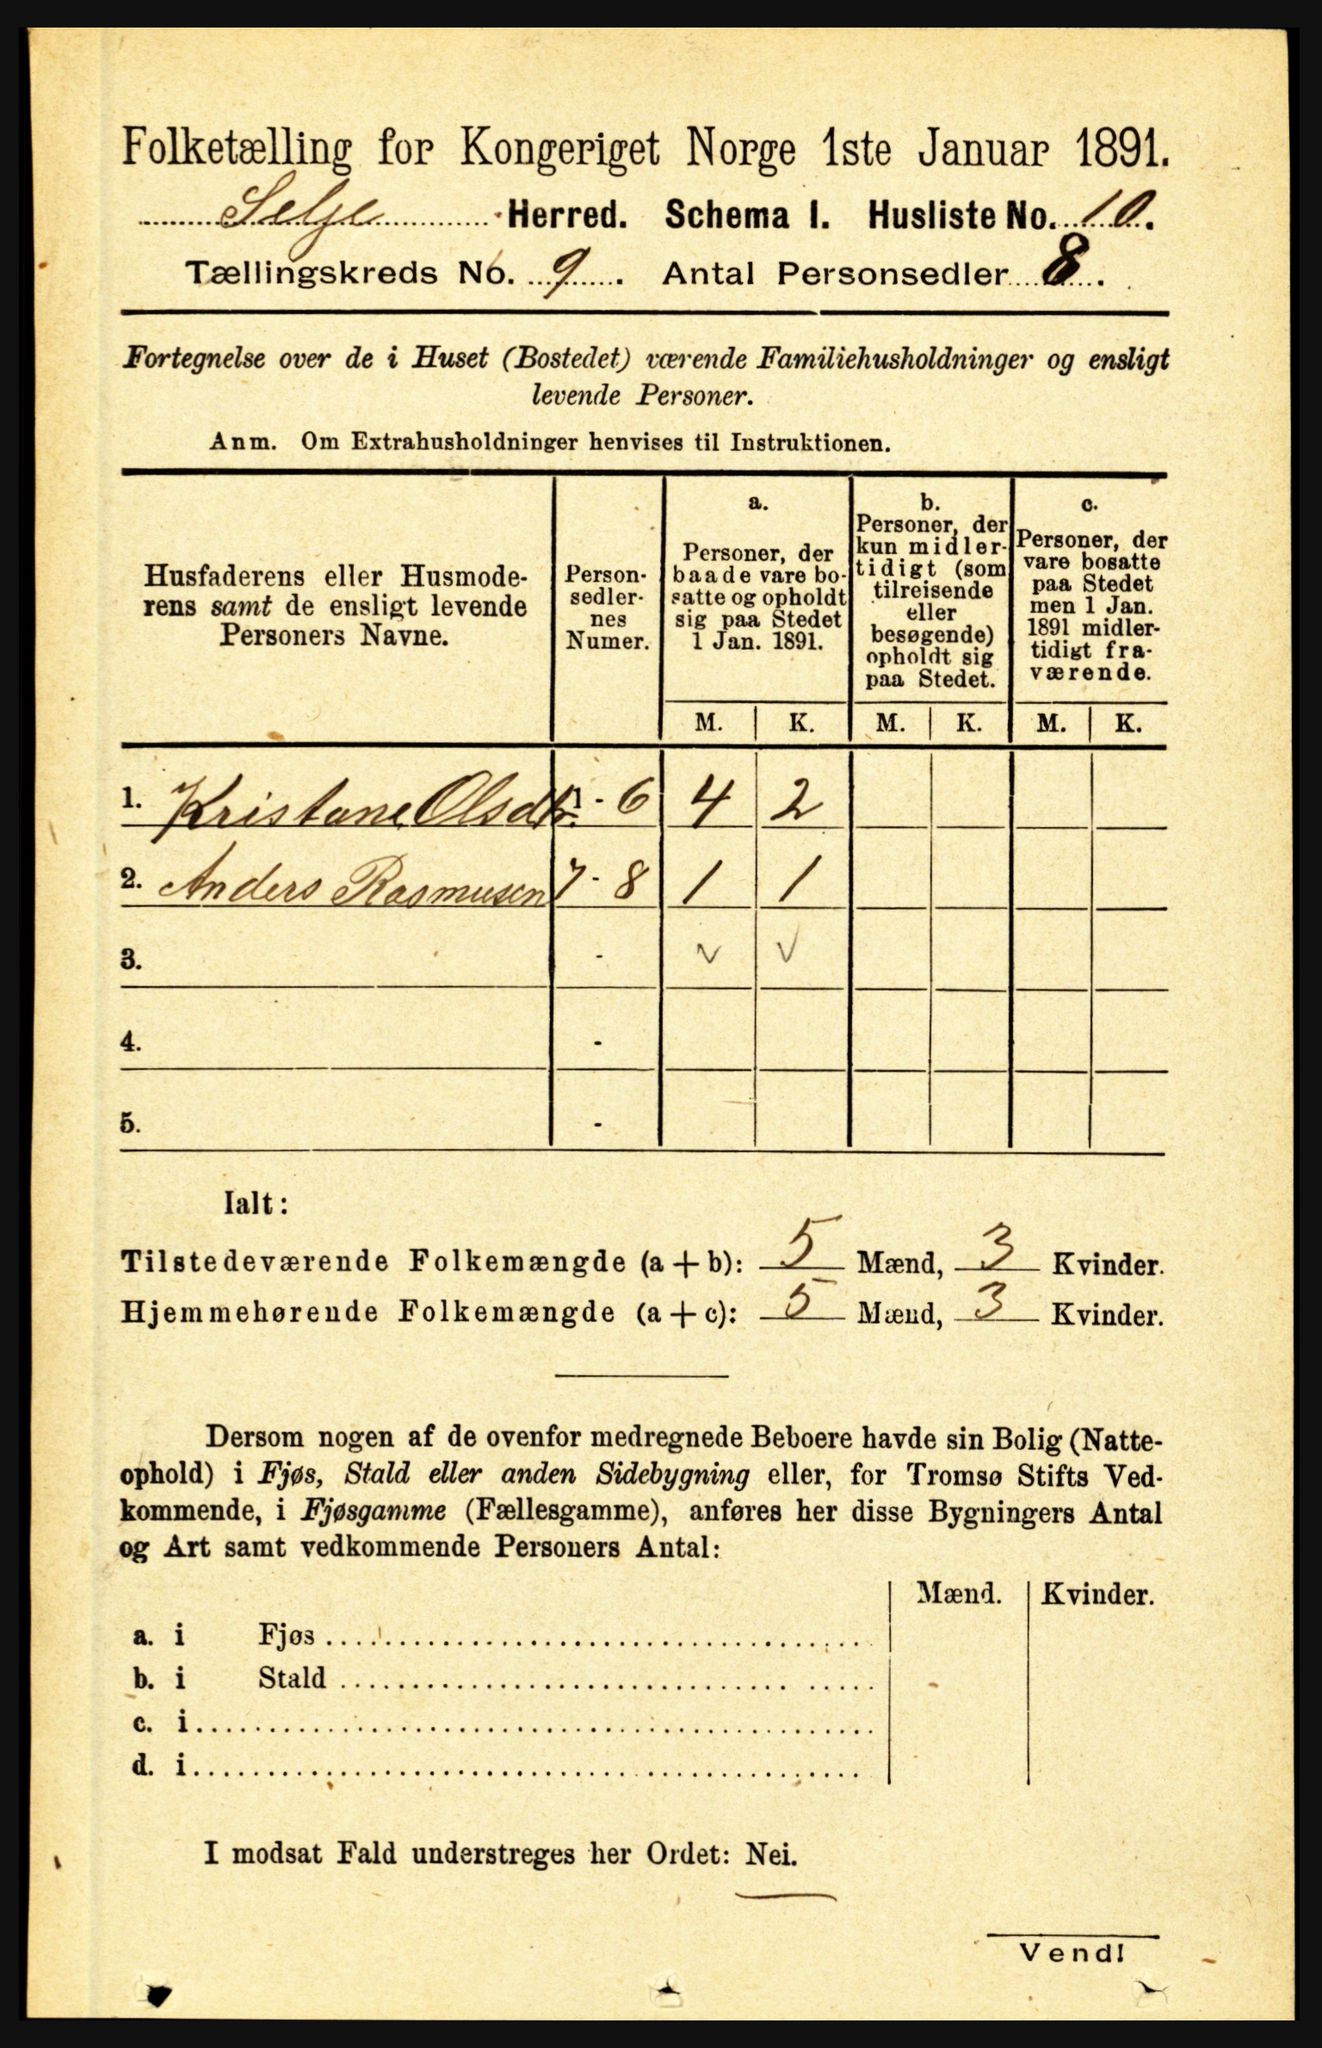 Folketælling for Kongeriget Norge 1ste Januar 1891.
Selje Herred. Schema I. Husliste No. 10.
Tællingskreds No. 9. Antal Personsedler 8.
Fortegnelse over de i Huset (Bostedet) værende Familiehusholdninger og ensligt
levende Personer.
Anm. Om Extrahusholdninger henvises til Instruktionen.
Husfaderens eller Husmode-
rens samt de ensligt levende
Personers Navne.
Person-
sedler-
nes
Numer.
a.
Personer, der
baade vare bo-
satte og opholdt
sig paa Stedet
1 Jan. 1891.
b.
Personer, der
kun midler-
tidigt (som
tilreisende
eller
besøgende)
opholdt sig
paa Stedet.
c.
Personer, der
vare bosatte
paa Stedet
men 1 Jan.
1891 midler-
tidigt fra-
værende.
M. K. M. K. M. K.
1. Kristane Olsdtr. 1 - 6 4 2
2. Anders Rasmusen 7 - 8 1 1
3. - v v
4. -
5. -
Ialt:
Tilstedeværende Folkemængde (a + b): 5 Mænd, 3 Kvinder.
Hjemmehørende Folkemængde (a + c): 5 Mænd, 3 Kvinder.
Dersom nogen af de ovenfor medregnede Beboere havde sin Bolig (Natte-
ophold) i Fjøs, Stald eller anden Sidebygning eller, for Tromsø Stifts Ved-
kommende, i Fjøsgamme (Fællesgamme), anføres her disse Bygningers Antal
og Art samt vedkommende Personers Antal:
Mænd. Kvinder.
a. i Fjøs
b. i Stald
c. i
d. i
I modsat Fald understreges her Ordet: Nei.
Vend!